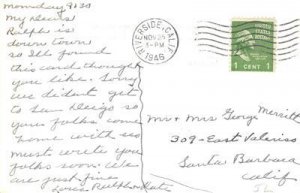 Monday 9:30
My dears
Ralph is
down town
so Ill found
this card thought
you like. Sorry
we didnt get
to San Diego so
you folks come
home with us
must write you
folks soon. We
are just fine
Love Ralph + Kate
RIVERSIDE, CALIF.
NOV 25
5-PM
1946
1 CENT 1
Mr + Mrs George Merritt
309-East Valerio
Santa Barbara
Calif